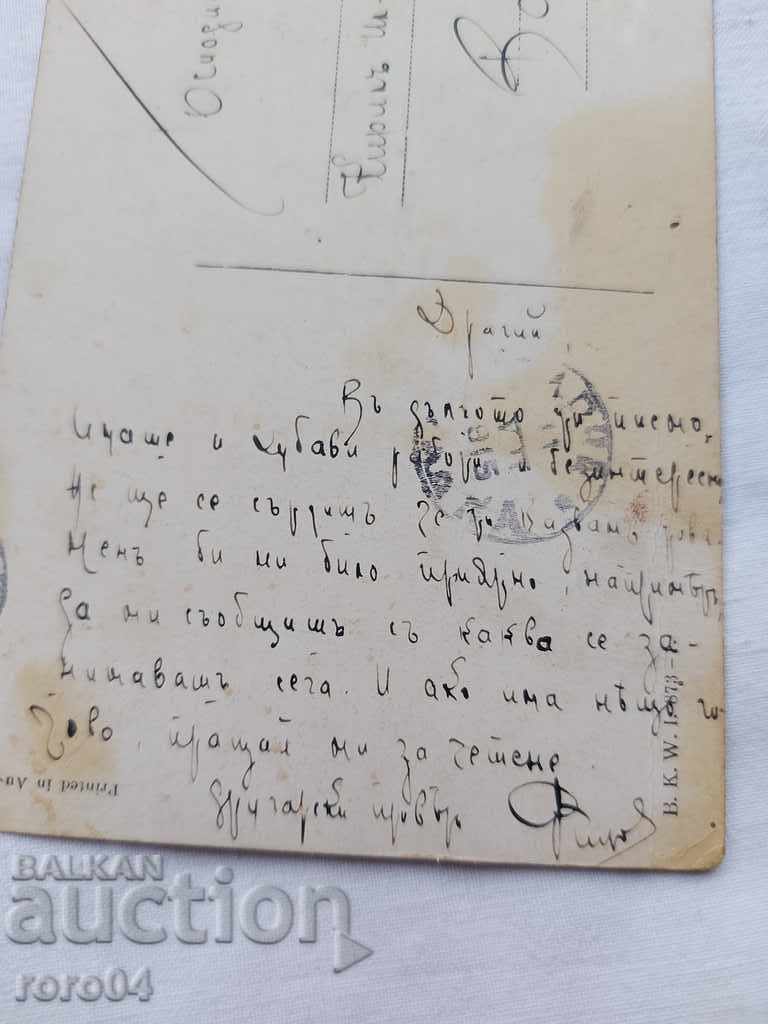 Господи
Кирилъ
Драгий,
Въ дългото ти писмо,
имаше и хубави работи и безинтересни
Не ще се сърдишъ че ти казвамъ това.
Менъ би ми било приятно, напримѣръ,
да ми съобщишъ съ каква се за-
нимавашъ сега. И ако има нѣщо го-
тово, пращай ми за четене.
Другарски
Printed in Au
B. K. W. I.
BALKAN
auction
roro04